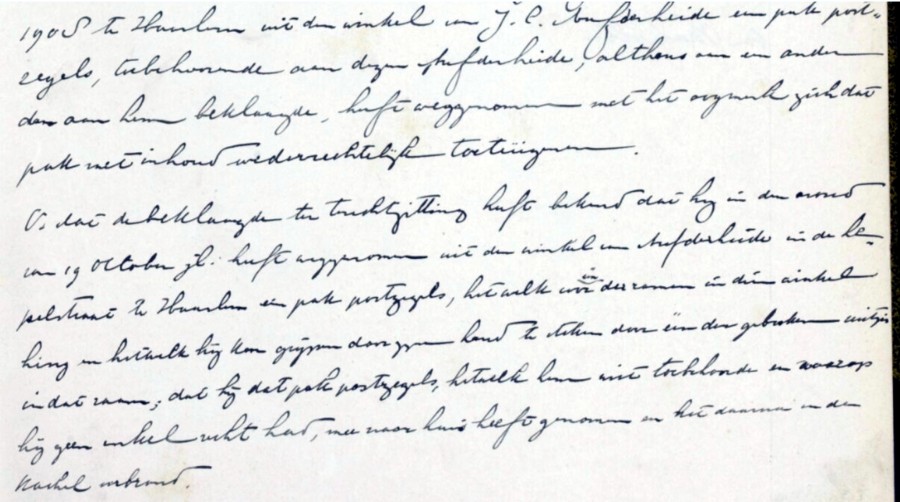 1908 te Haarlem uit den winkel van J. C. Aufderheide een pak post-
zegels, toebehoorende aan dezen Aufderheide, althans aan een ander
dan aan hem beklaagde, heeft weggenomen met het oogmerk zich dat
pak met inhoud wederrechtelijk toeteëigenen.
O. dat de beklaagde ter terechtzitting heeft bekend dat hij in den avond
van 19 October jl. heeft weggenomen uit den winkel van Aufderheide in de Ka-
pelstraat te Haarlem een pak postzegels, hetwelk voor in der ramen in dien winkel
hing en hetwelk hij kon grijpen door zijn hand te steken door één der gebroken ruitjes
in dat raam; dat hij dat pak postzegels, hetwelk hem niet toebehoorde en waarop
hij geen enkel recht had, mee naar huis heeft genomen en het daarna in den
kachel verbrand.